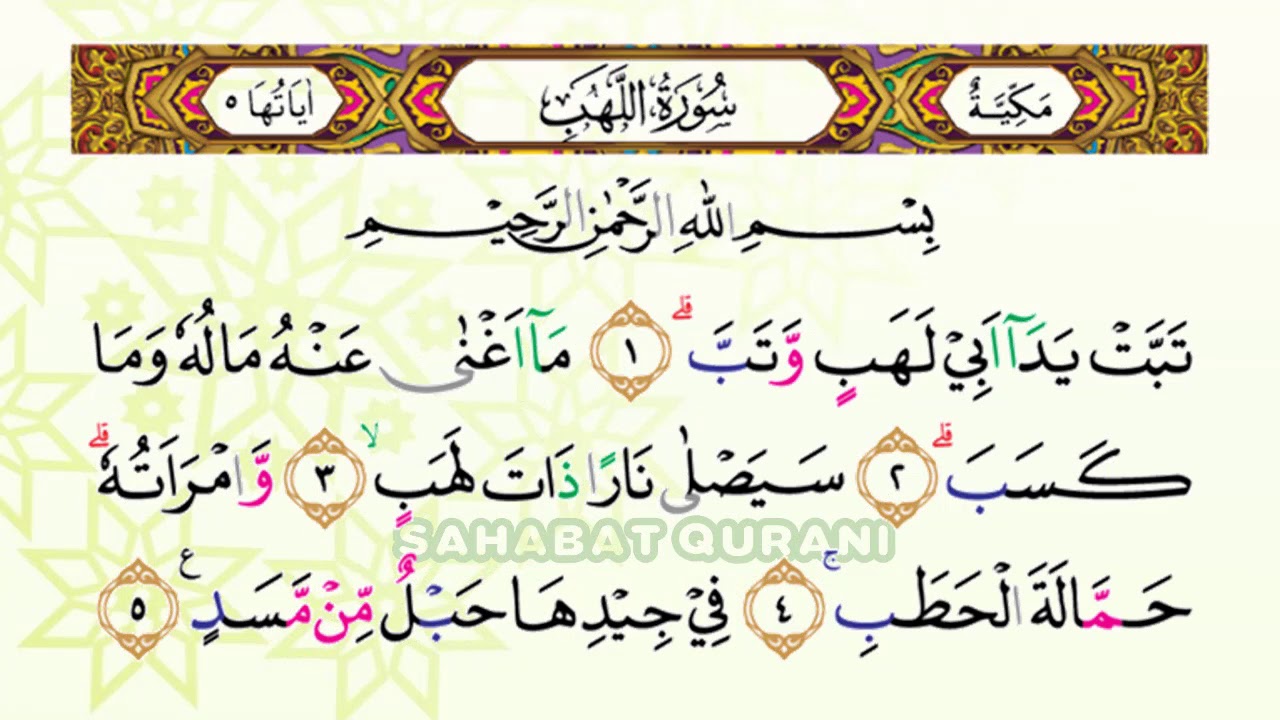 مَكِّيَّةٌ سُوْرَةُ اللَّهَبِ اٰيَاتُهَا ٥
بِسْمِ اللّٰهِ الرَّحْمٰنِ الرَّحِيْمِ
تَبَّتْ يَدَآ اَبِيْ لَهَبٍ وَّتَبَّ ۗ ١ مَآ اَغْنٰى عَنْهُ مَالُهٗ وَمَا
كَسَبَ ۗ ٢ سَيَصْلٰى نَارًا ذَاتَ لَهَبٍ ۙ ٣ وَّامْرَاَتُهٗ ۗ
SAHABAT QURANI
حَمَّالَةَ الْحَطَبِ ۚ ٤ فِيْ جِيْدِهَا حَبْلٌ مِّنْ مَّسَدٍ ࣖ ٥